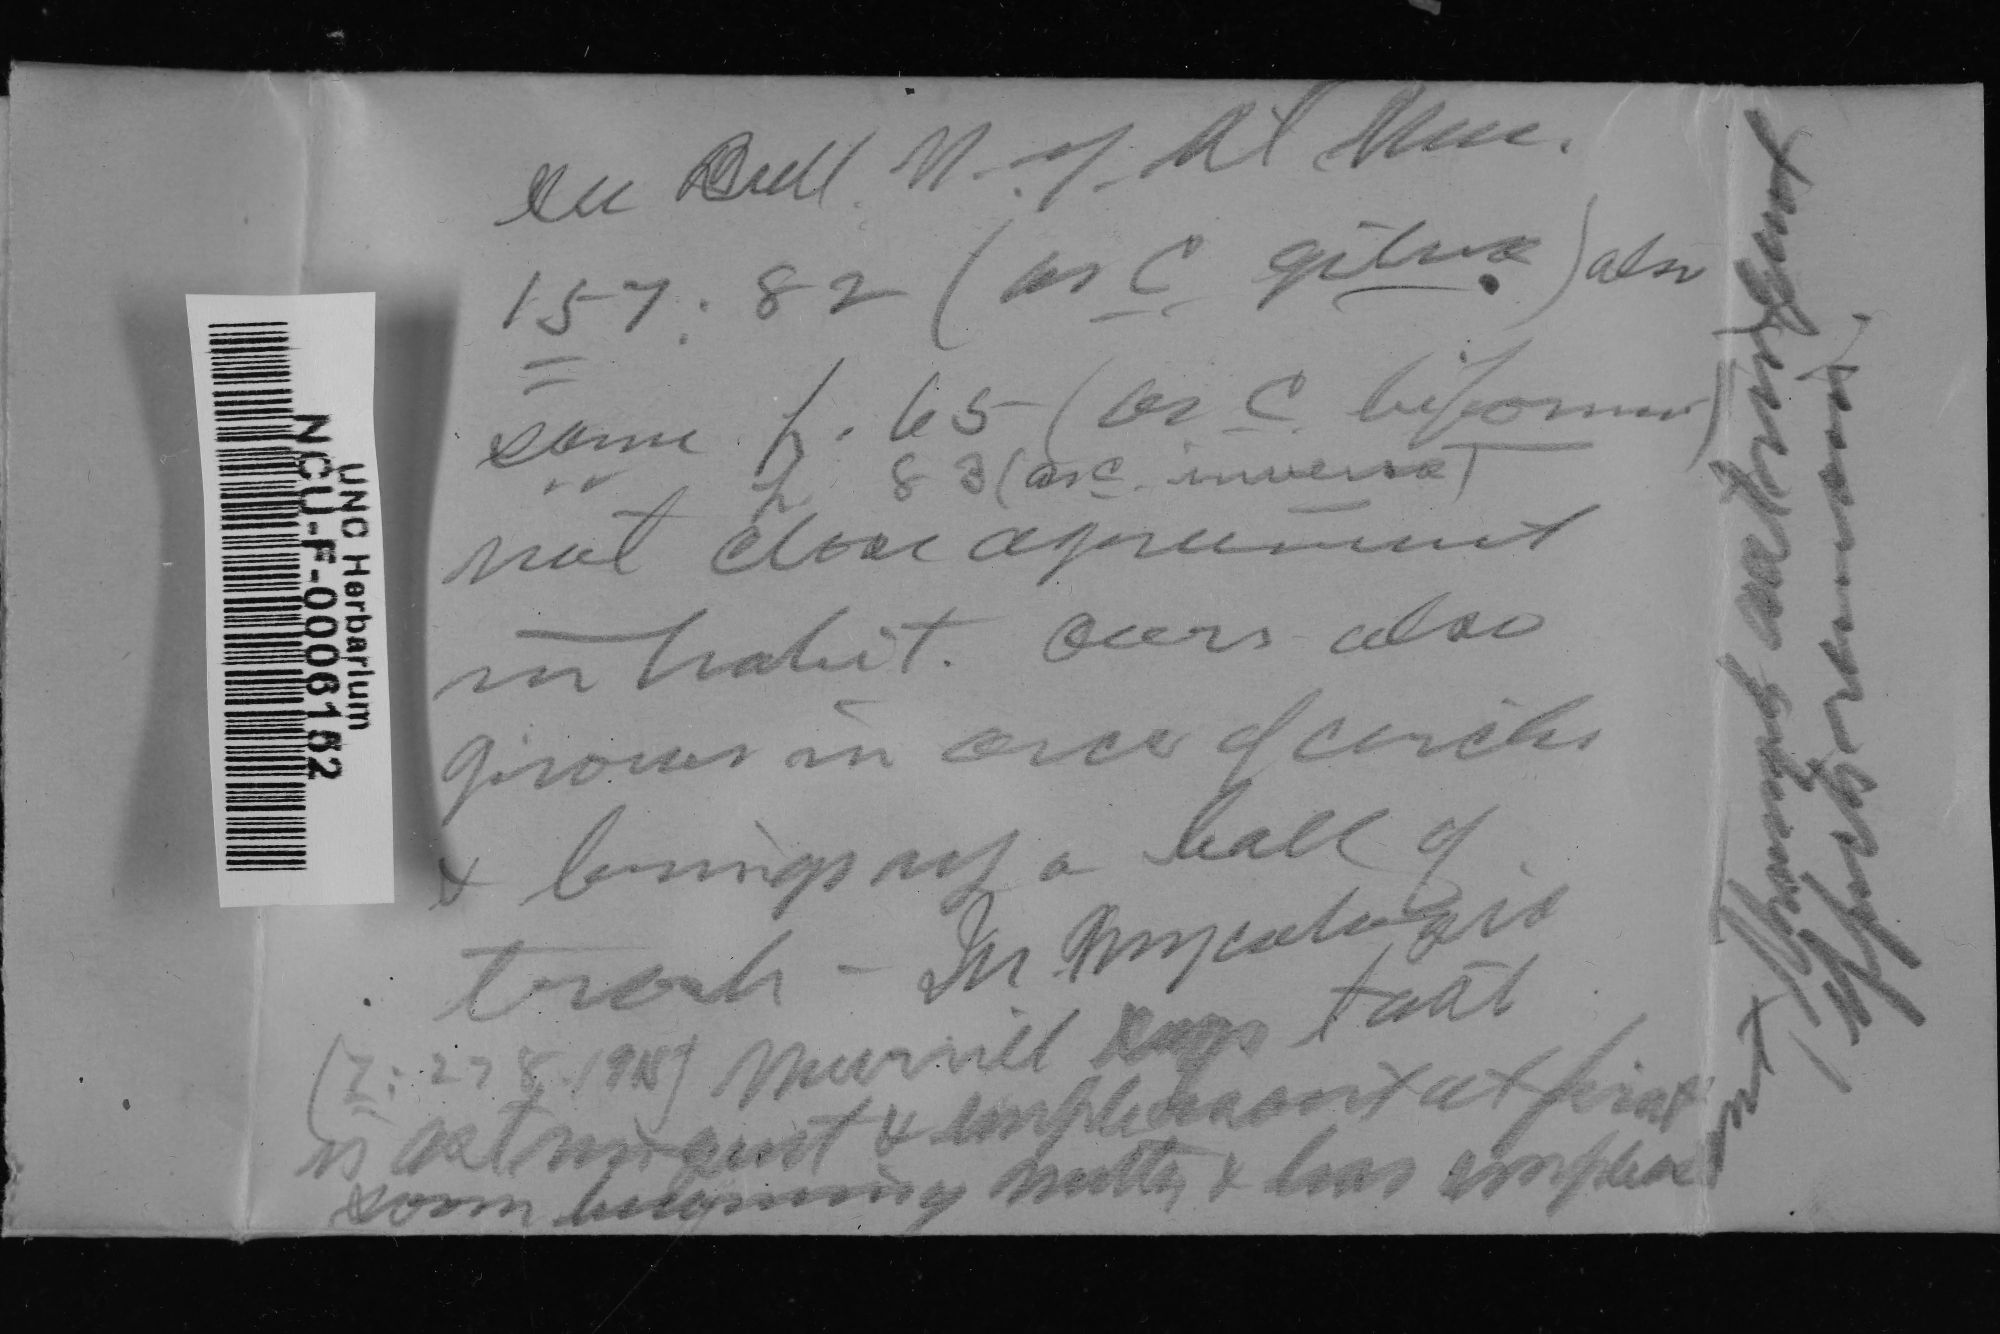 See Bull. N.Y. St Mus.
157: 82 (as C. gilva) also
same p. 65 (as C. biformis)
p. 83 (as C. inversa)
not close agreement
in habit. Ours also
grows in arcs of circles
& brings up a ball of
trash - In Mycologia
(7: 278. 1915) Murrill says taste
is astringent & unpleasant at first
soon becoming nutty, & has unpleas
ant
astringent
UNC Herbarium
NCU-F-0006182